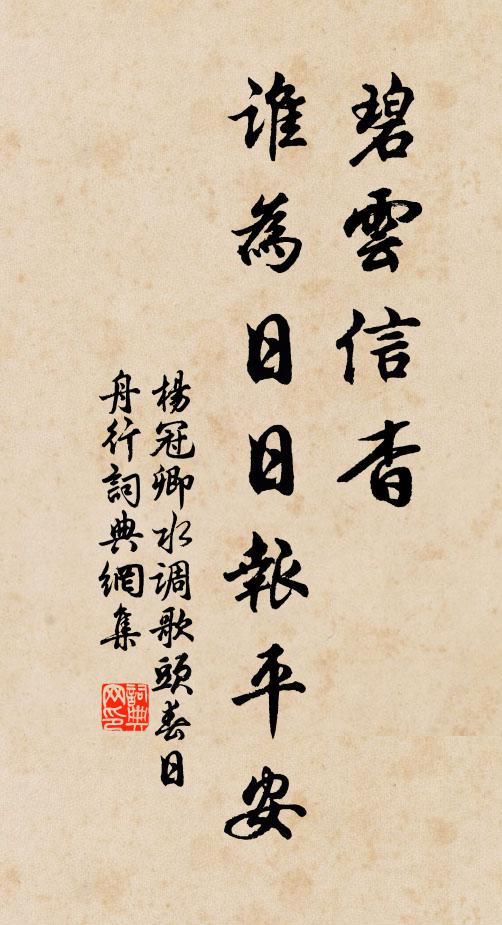 碧雲信杳
誰為日日報平安
楊冠卿水調歌頭春日
舟行詞典網集
詞典网印